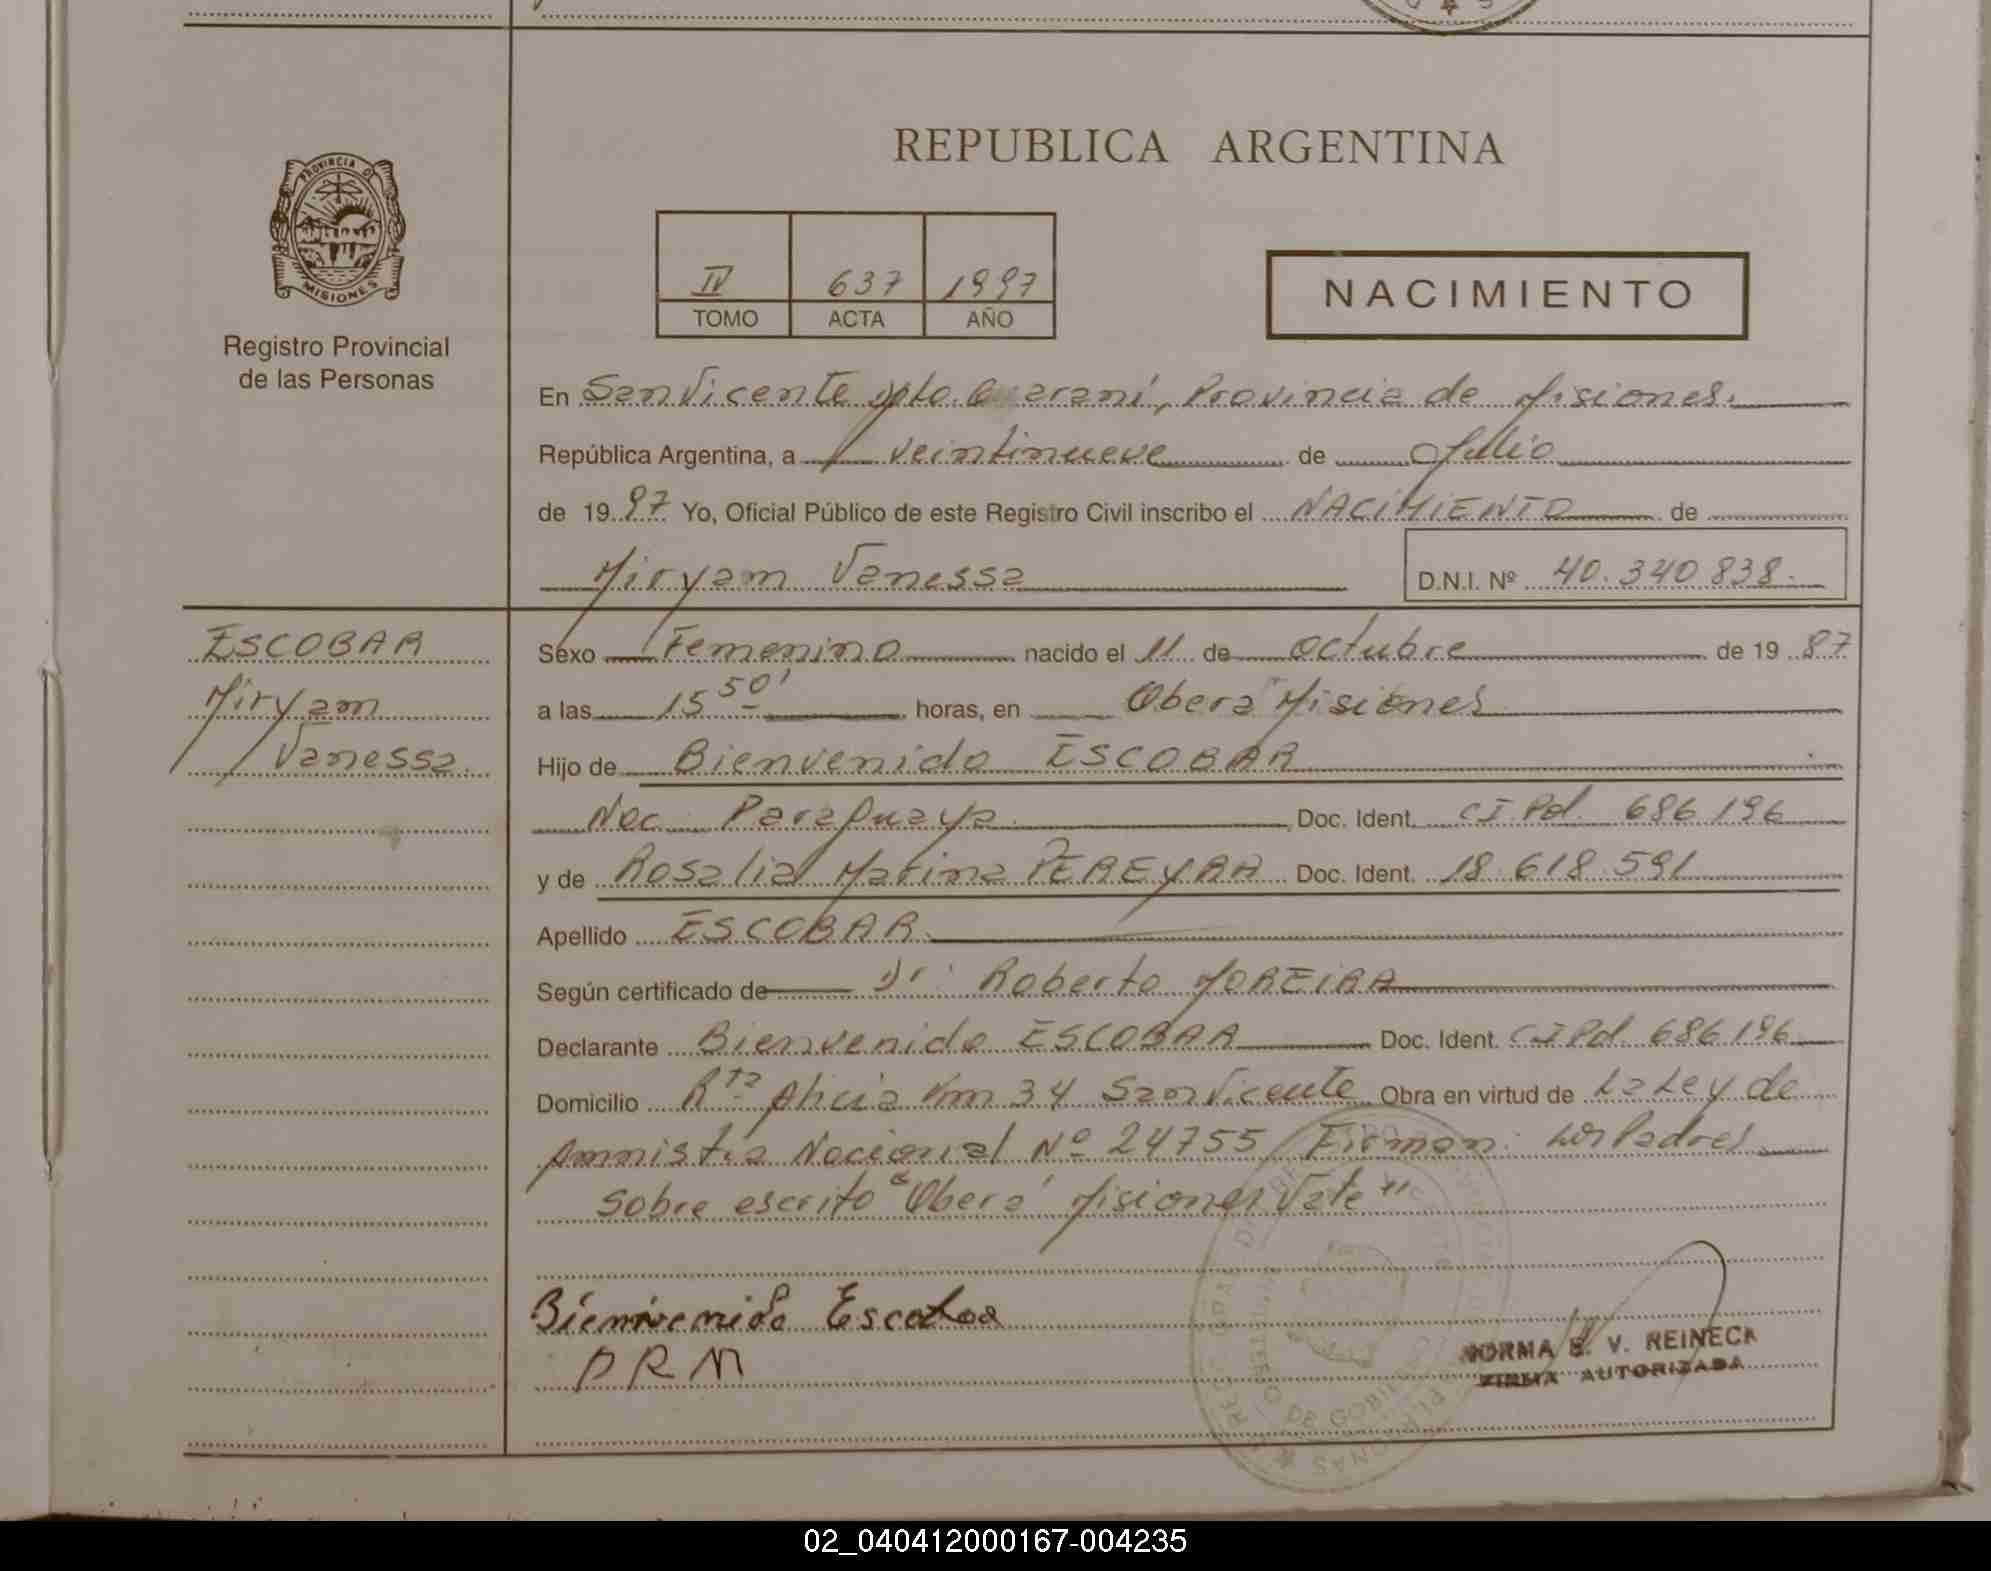 REPUBLICA ARGENTINA
PROVINCIA DE
MISIONES
Registro Provincial
de las Personas
IV 637 1997
TOMO ACTA AÑO
NACIMIENTO
En San Vicente Dpto. Guaraní, Provincia de Misiones.
República Argentina, a veintinueve de Julio
de 1997 Yo, Oficial Público de este Registro Civil inscribo el NACIMIENTO de
Miryam Vanessa D.N.I. Nº 40.340838.
ESCOBAR
Miryam
Vanessa.
Sexo Femenino nacido el 11 de octubre de 1987
a las 15 50' horas, en Oberá Misiones
Hijo de Bienvenido ESCOBAR
Nac. Paraguaya Doc. Ident. CI.Pol. 686196
y de Rosalia Marina PEREYRA Doc. Ident. 18.618.591
Apellido ESCOBAR.
Según certificado de Dr. Roberto MOREIRA
Declarante Bienvenido ESCOBAR Doc. Ident. CI Pol. 686196
Domicilio Rta. Alicia Km 34 San Vicente Obra en virtud de La Ley de
Amnistía Nacional Nº 24755 Firman: Los Padres
Sobre escrito "Oberá Misiones Vale"
Bienvenido Escobar
P R M
NORMA E. V. REINECK
FIRMA AUTORIZADA
02_040412000167-004235